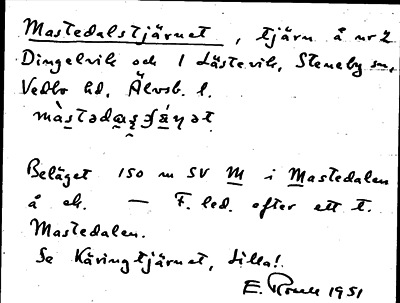 Mastedalstjärnet, tjärn å nr 2
Dingelvik och 1 Lästevik, Steneby sn,
Vedbo hd, Älvsb. l.
màstədaʂɕǽɳət
Beläget 150 m SV M i Mastedalen
å ek. — F. led. efter ett t.
Mastedalen.
Se Käringtjärnet, Lilla!
E. 1951